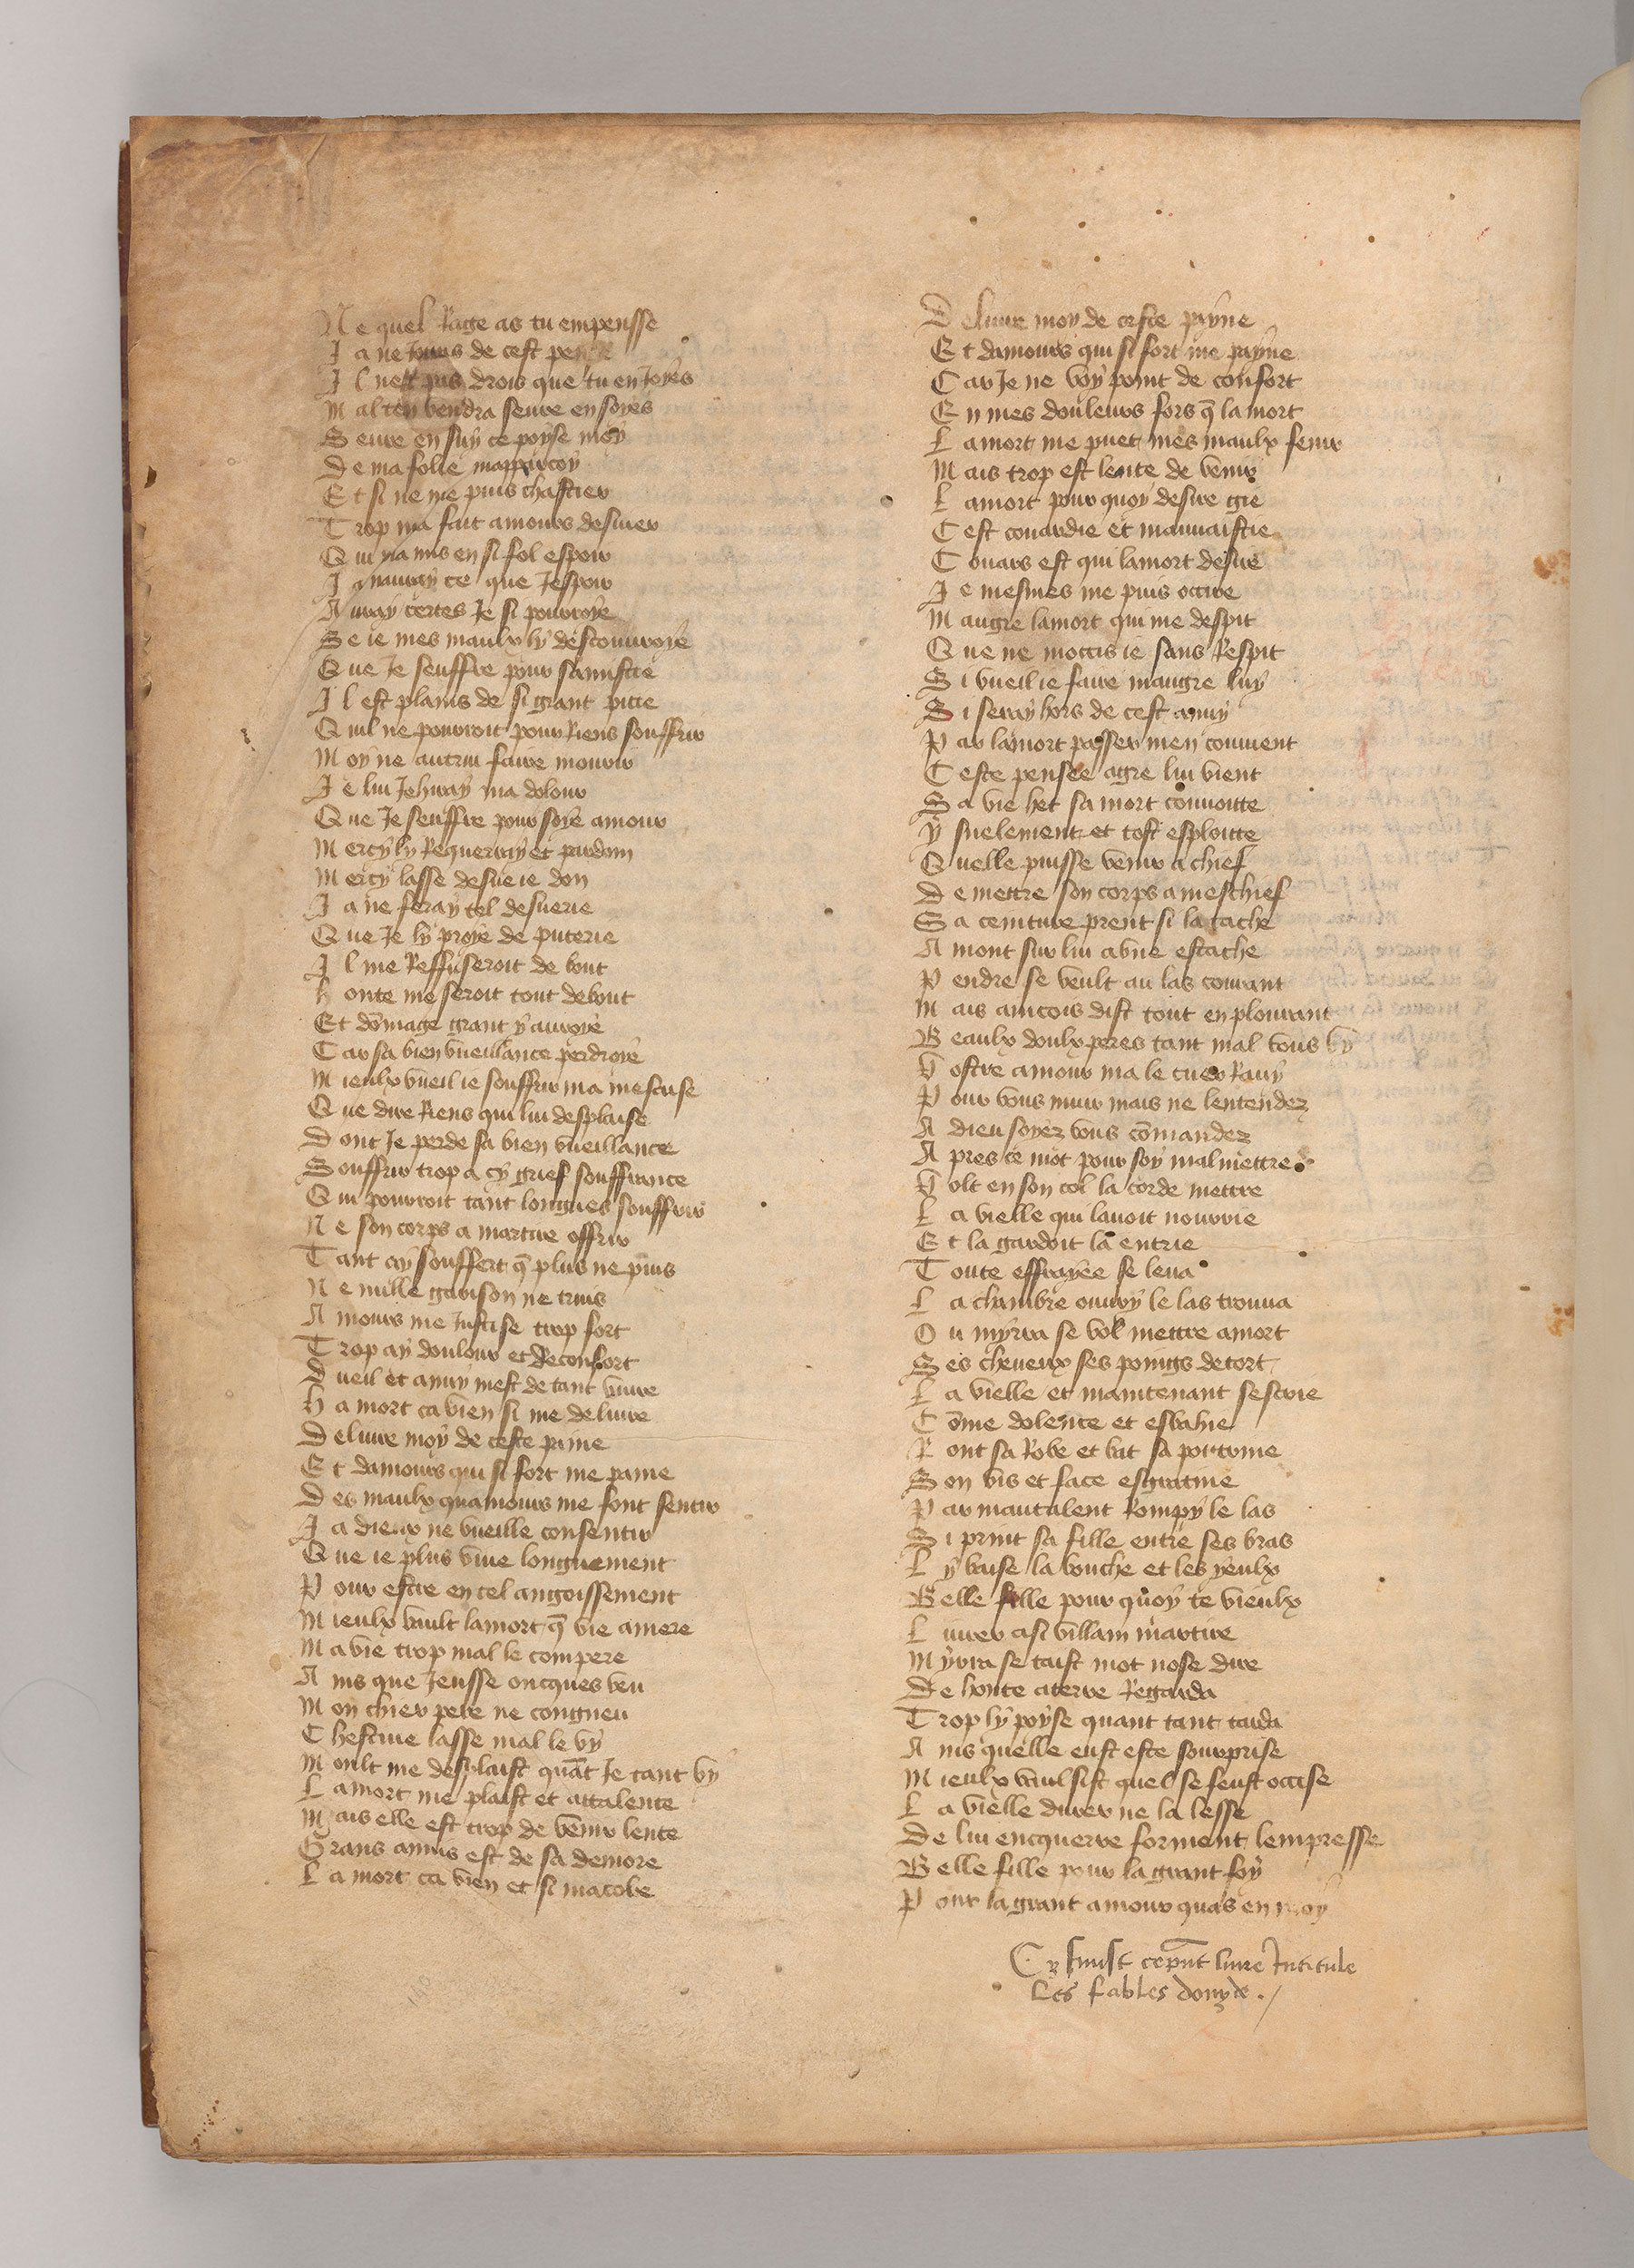 Ne quel Rage as tu empensse
Ja ne Jours de cest pe
Il nest pas drois que tu en Joyes
Mal ten vendra seure en soyes
Seure en suy ce poyse moy
De ma folie mappercoy
Et si ne me puis chastier
Trop ma fait amours desuier
Qui ma mis en si fol espoir
Ja nauray ce que Jespoir
Auray certes Je si pourroye
Se ie mes maulx ly descouuroye
Que Je seuffre pour samistie
Il est plains de si grant pitie
Quil ne pourroit pour Riens souffrir
Moy ne autrui faire mourir
Je lui Jehiray ma dolour
Que Je seuffre pour soye amour
Mercy ly Requerray et pardom
Mercy lasse desue ie don
Ja ne feray tel desuerie
Que Je ly proye de puterie
Il me Reffuseroit de bout
Honte me seroit tout debout
Et dōmage grant y auroye
Car sa bien vueillance perdroye
Mieulx vueil ie souffrir ma mesaise
Que dire Riens qui lui desplaise
Dont Je perde sa bien vueillance
Souffrir trop a cy grief souffrance
Qui pourroit tant longues souffrir
Ne son corps a martire offrir
Tant ay souffert q̄ plus ne puis
Ne nulle garison ne truis
Amours me Justise trop fort
Trop ay doulour et Reconfort
Dueil et anuy mest de tant viure
Ha mort ca vien si me deliure
Deliure moy de ceste paine
Et damours qui si fort me paine
Des maulx quamours me font sentir
Ja dieux ne vueille consentir
Que ie plus viue longuement
Pour estre en cel angoissement
Mieulx vault la mort q̄ vie amere
Ma vie trop mal le compere
Ains que Jeusse oncques veu
Mon chier pere ne congneu
Chestiue lasse mal le vy
Moult me desplaist quāt Je tant vy
La mort me plaist et attalente
Mais elle est trop de venir lente
Grans anuis est de sa demore
La mort ca vien et si macobe
Deliure moy de ceste payne
Et damours qui si fort me payne
Car Je ne voy point de confort
En mes douleurs fors q̄ la mort
La mort me puet mes maulx fenir
Mais trop est lente de venir
La mort pour quoy desire gie
Cest couardie et mauuaistie
Couars est qui la mort desire
Je mesmes me puis occire
Maugre la mort qui me despit
Que ne moccis ie sans Respit
Si vueil ie faire maugre luy
Si seray hors de cest anuy
Par la mort passer men conuient
Ceste pensee agre lui vient
Sa vie het sa mort conuoitte
Ysnelement et tost esploitte
Quelle puisse venir a chief
De mettre son corps a meschief
Sa ceinture prent si latache
Amont sur lui a vne estache
Pendre se veult au las courant
Mais aincois dist tout en plourant
Beaulx doulx peres tant mal vous vy
Vostre amour ma le cuer Rauy
Pour vous muir mais ne lentendez
A dieu soyez vous cōmandez
Apres ce mot pour soy malmettre
Volt en son col la corde mettre
La vielle qui lauoit nourrie
Et la gardoit la entrie
Toute effrayee se leua
La chambre ouury le las trouua
Ou myrra se vol mettre a mort
Ses cheueux ses poings detort
La vielle et maintenant sescrie
Cōme dolente et esbahie
Ront sa Robe et bat sa poitrine
Son vis et face esgratine
Par mautalent Rompy le las
Si print sa fille entre ses bras
Ly baise la bouche et les yeulx
Belle fille pour quoy te vieulx
Liurer a si villain martire
Myrra se taist mot nose dire
De honte a terre Regarda
Trop ly poyse quant tant tarda
Ains quelle eust este sourprise
Mieulx vaulsist quel se feust occise
La vielle durer ne la lesse
De lui encquerre forment lempresse
Belle fille pour la grant foy
Pour la grant amour quas en moy
Cy finist cepn̄t liure Intitule
Les fables douyde ./